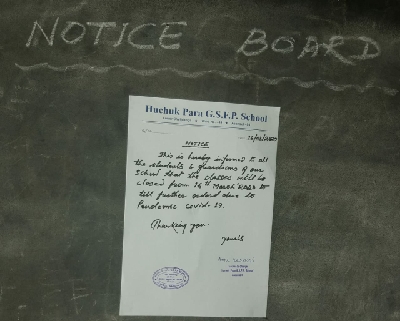 NOTICE BOARD
Huchuk Para G.S.F.P. School
NOTICE
This is hereby informed to all
the students & guardians of our
School that the classes will be
closed from 16th March 2020 to
till further orderd due to
Pandemic covid-19.
Thanking you.
yours